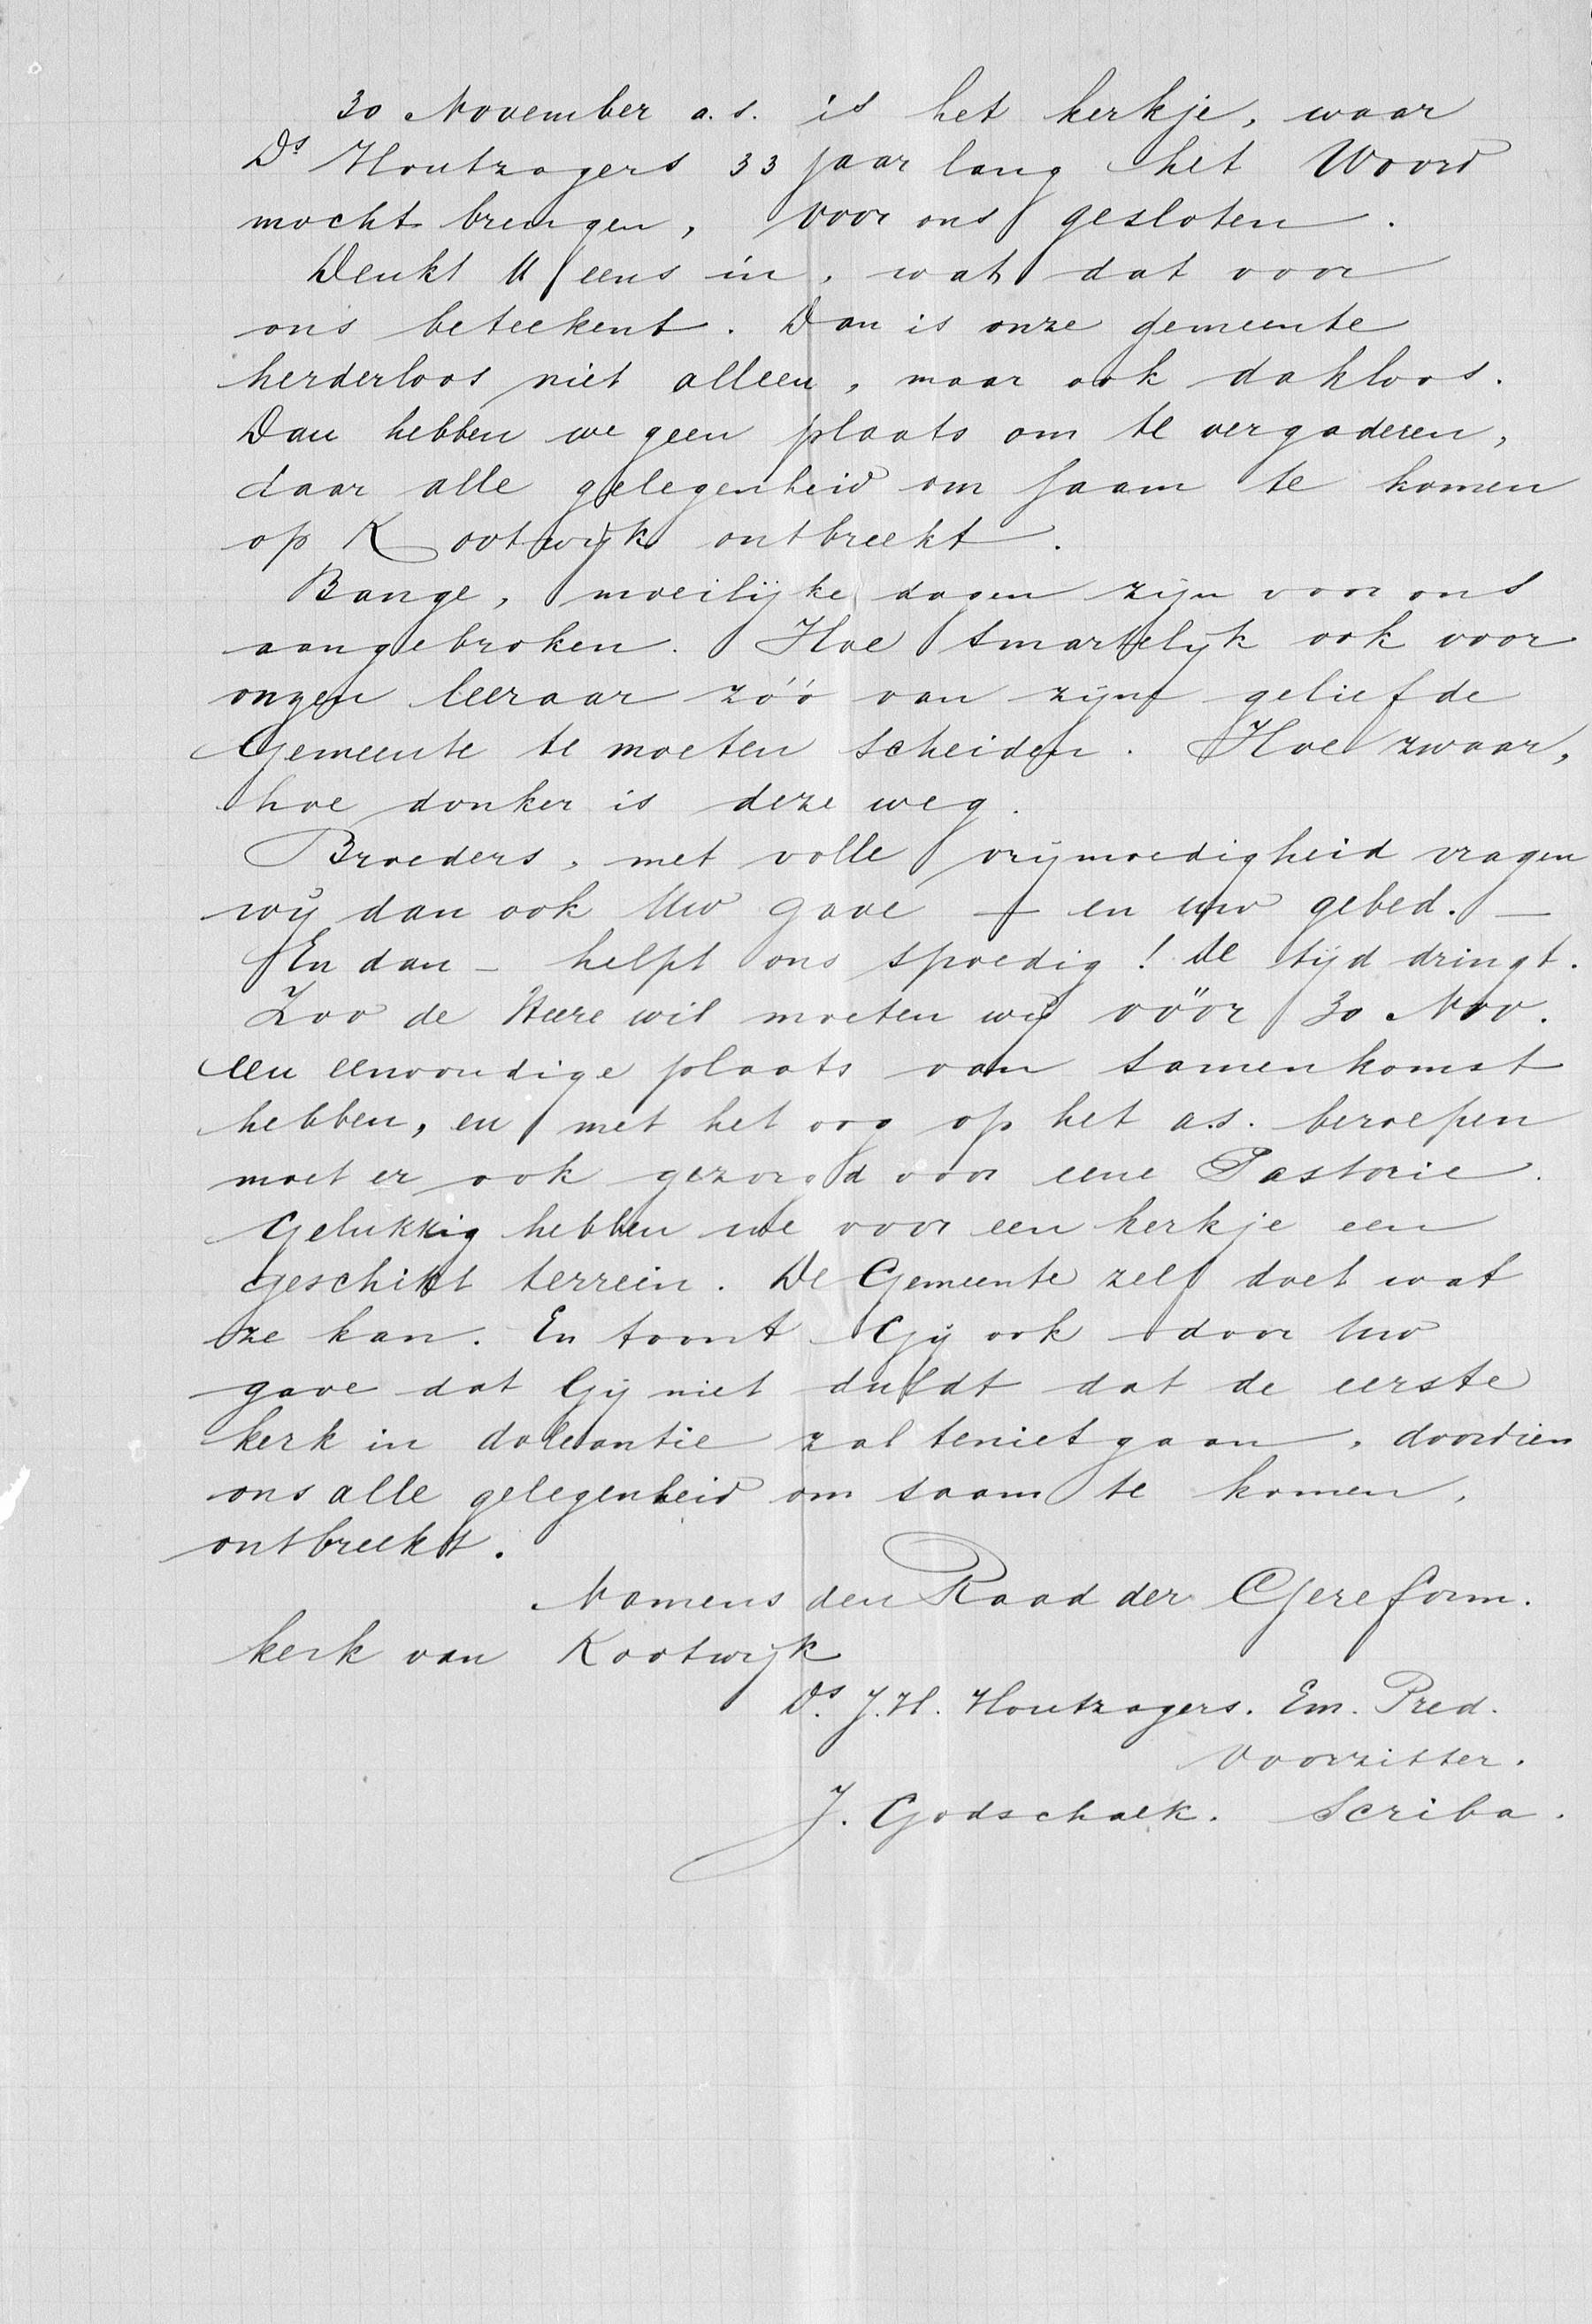 30 November a.s. is het kerkje, waar
Ds Houtzagers 33 jaar lang het Woord
mocht brengen, voor ons gesloten.
Denkt U eens in, wat dat voor
ons beteekent. Dan is onze gemeente
herderloos niet alleen, maar ook dakloos.
Dan hebben we geen plaats om te vergaderen,
daar alle gelegenheid om saam te komen
op Kootwijk ontbreekt.
Bange, moeilijke dagen zijn voor ons
aangebroken. Hoe smartelijk ook voor
onzen leeraar zóó van zijne geliefde
Gemeente te moeten scheiden. Hoe zwaar,
hoe donker is deze weg.
Broeders, met volle vrijmoedigheid vragen
wij dan ook Uw gave – en uw gebed. –
En dan – helpt ons spoedig! de tijd dringt.
Zoo de Heere wil moeten wij vóór 30 Nov.
een eenvoudige plaats van samenkomst
hebben, en met het oog op het a.s. beroepen
moet er ook gezorgd voor eene Pastorie.
Gelukkig hebben we voor een kerkje een
geschikt terrein. De Gemeente zelf doet wat
ze kan. En toont Gij ook door Uw
gave dat Gij niet duldt dat de eerste
kerk in doleantie zal teniet gaan, doordien
ons alle gelegenheid om saam te komen,
ontbreekt.
Namens den Raad der Gereform.
kerk van Kootwijk
Ds. J.H. Houtzagers. Em. Pred.
Voorzitter.
J. Godschalk. Scriba.